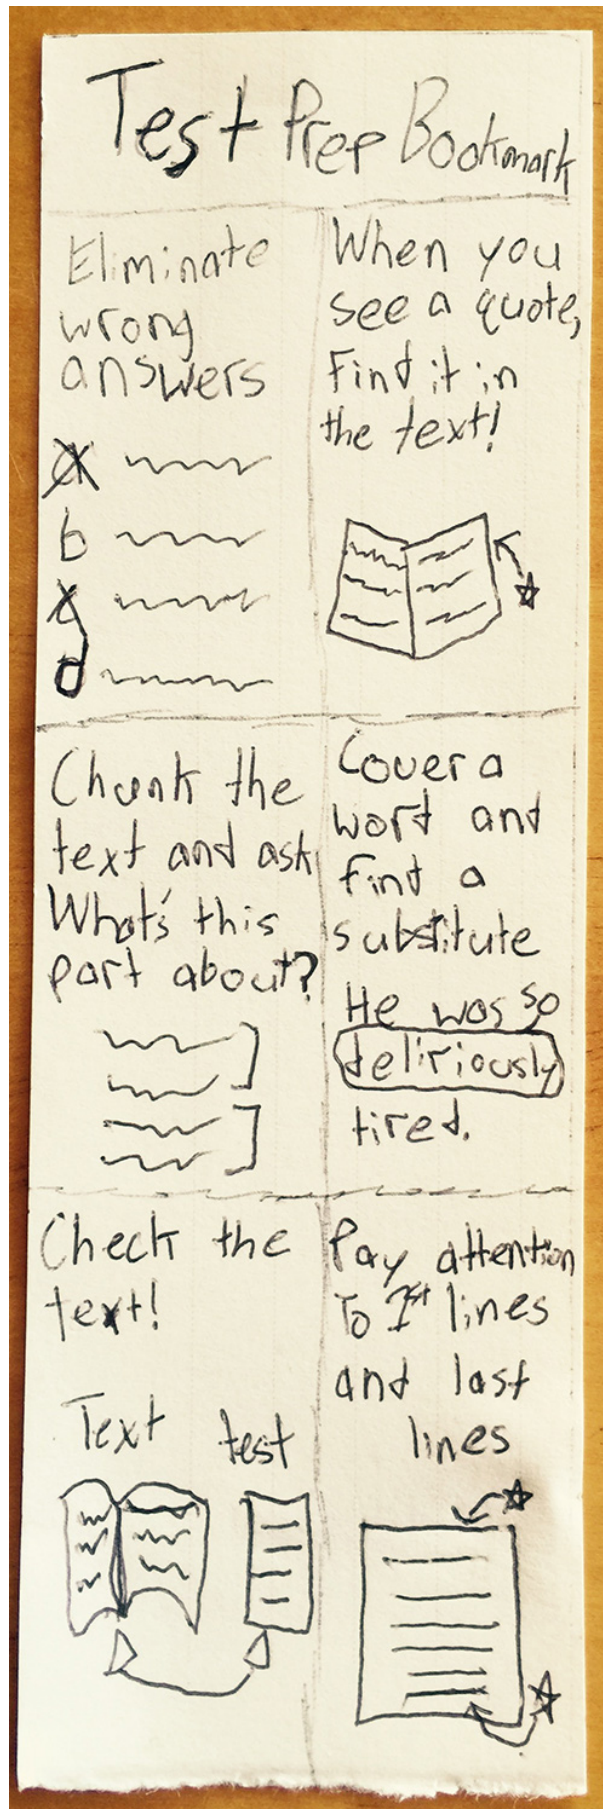 Test Prep Bookmark
Eliminate
wrong
answers
a
b
c
d
When you
see a quote,
Find it in
the text!
Chunk the
text and ask
What's this
part about?
Cover a
word and
find a
substitute
He was so
deliriously
tired.
Check the
text!
Text test
Pay attention
To 1st lines
and last
lines